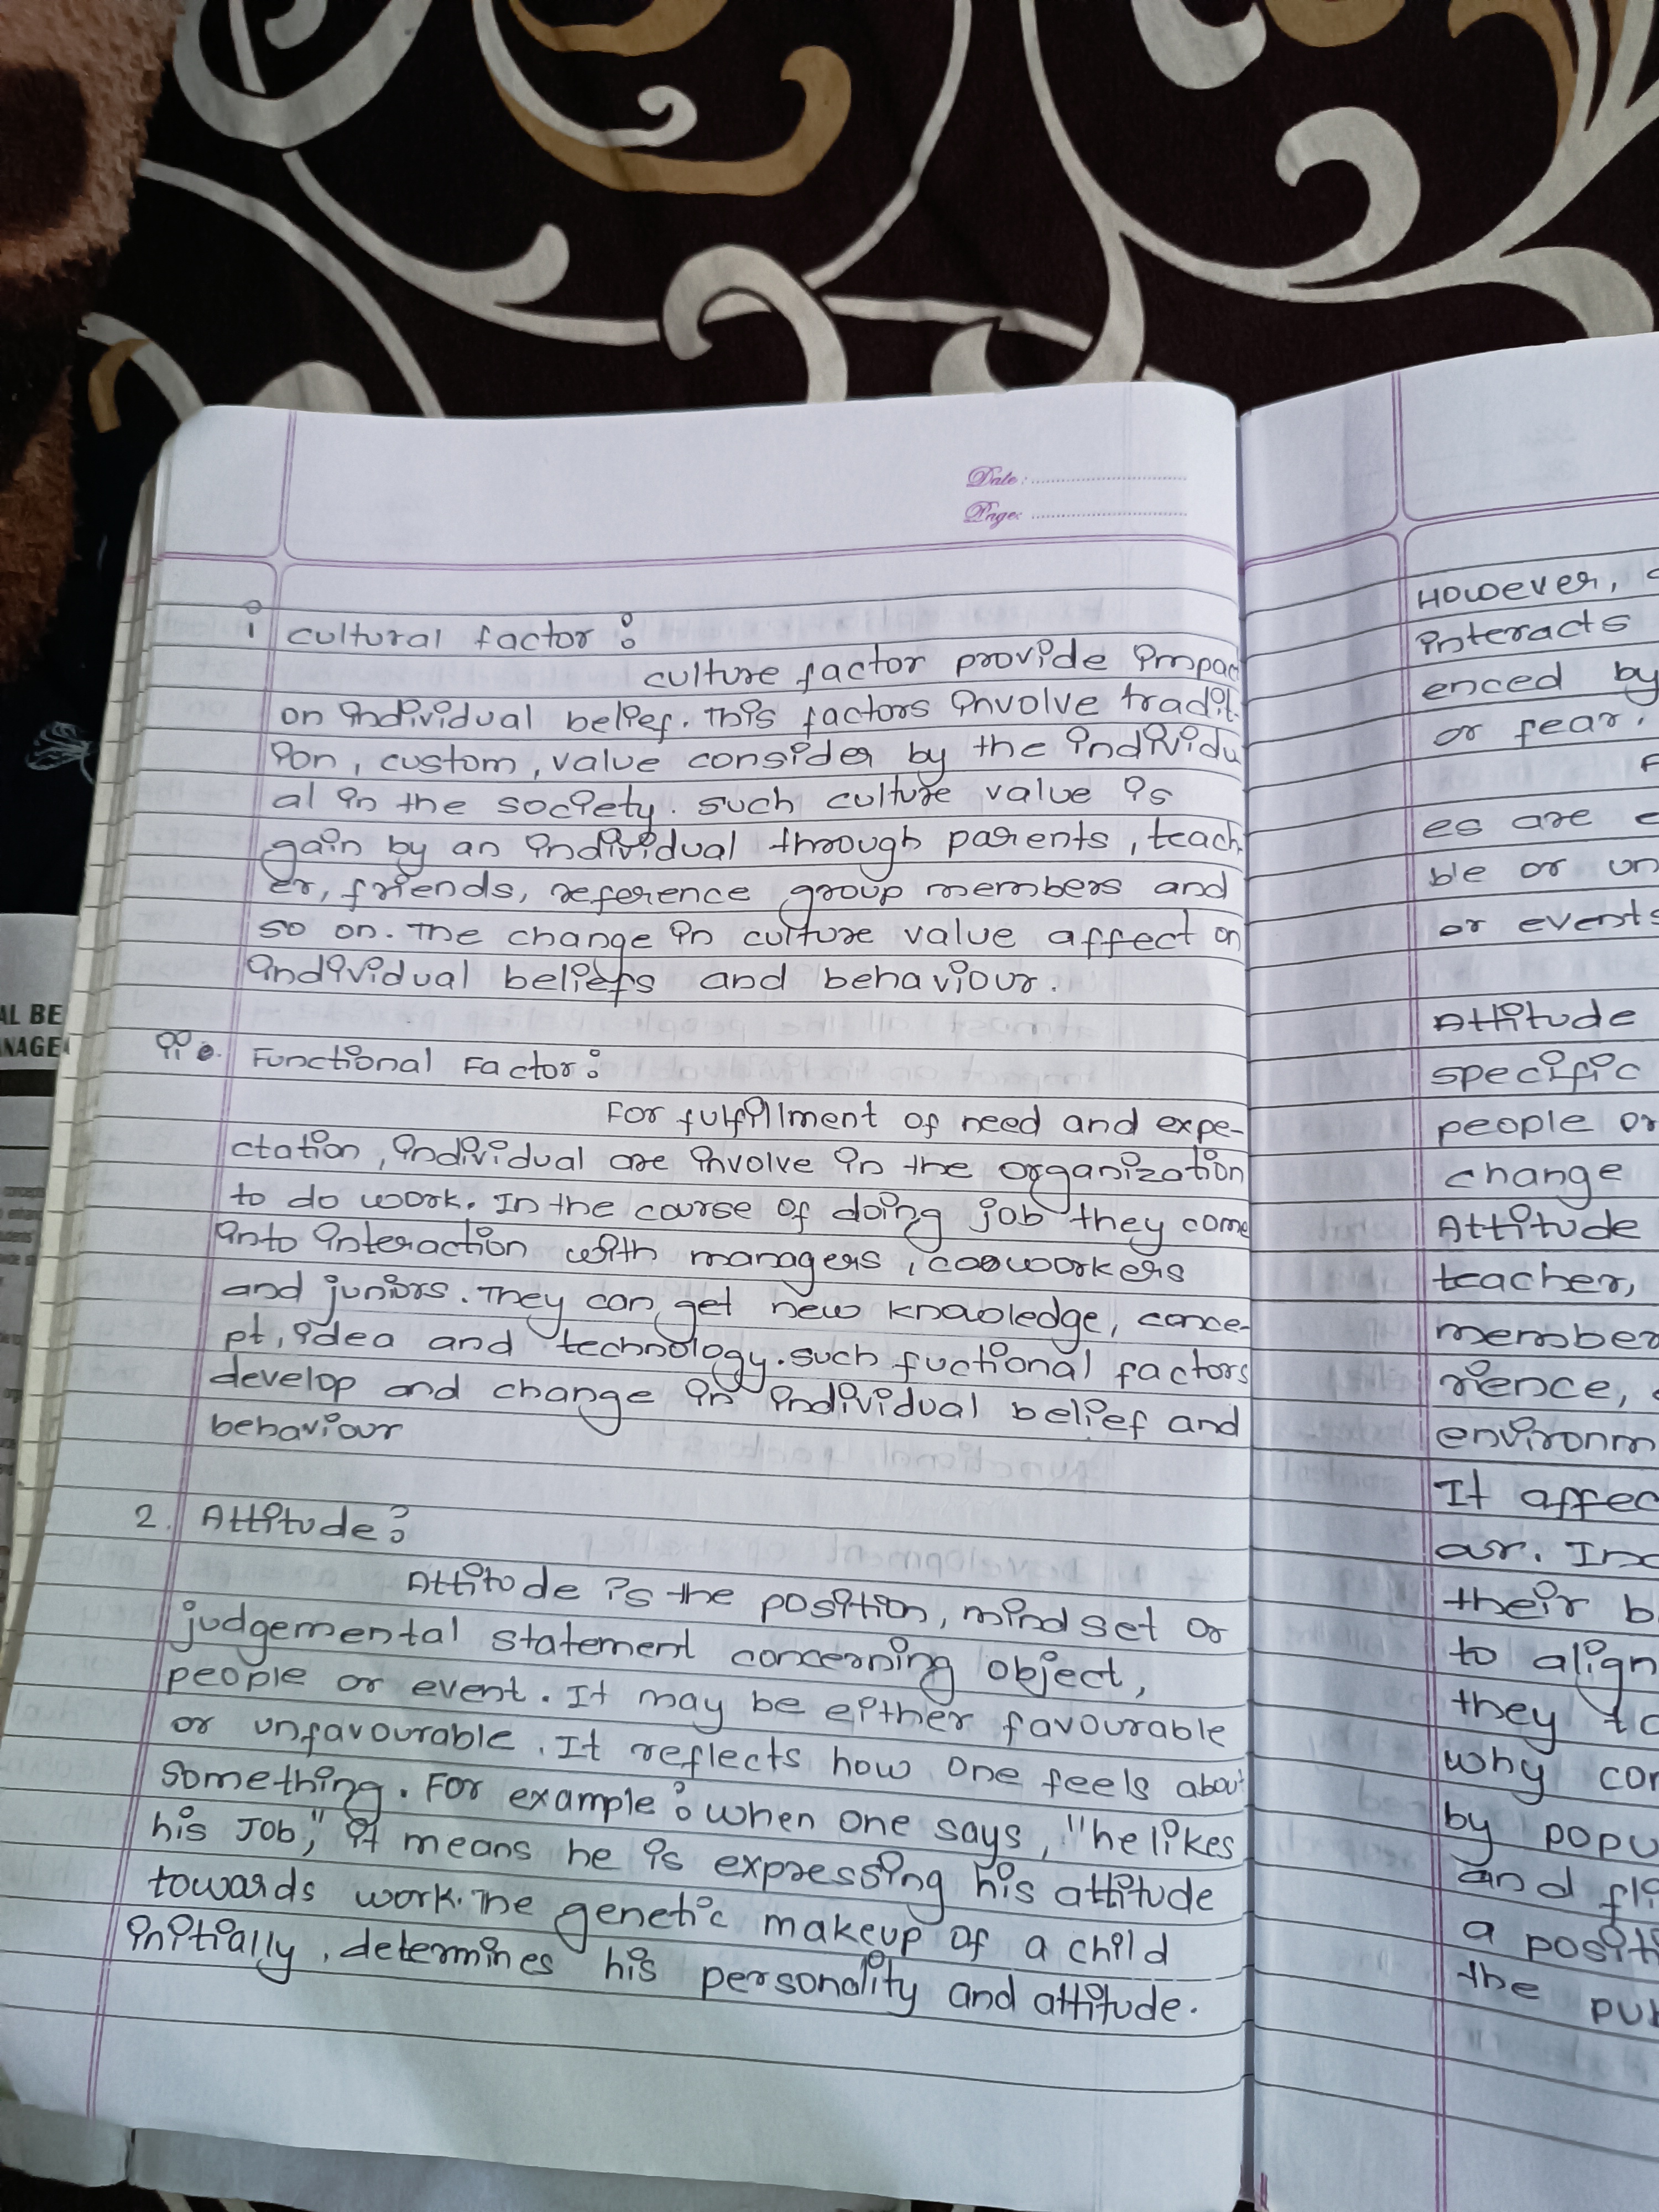 Date:
Page:
i cultural factor:
culture factor provide impac
on individual belief. This factors involve tradit-
ion, custom, value consider by the individu
al in the society. such culture value is
gain by an individual through parents, teach
er, friends, reference group members and
so on. The change in culture value affect on
individual beliefs and behaviour.
ii. Functional Factor:
For fulfillment of need and expe-
ctation, individual are involve in the organization
to do work. In the course of doing job they come
into interaction with managers, coworkers
and juniors. They can get new knowledge, conce-
pt, idea and technology. such fuctional factors
develop and change in individual belief and
behaviour
2. Attitude:
Attitude is the position, mind set or
judgemental statement concerning object,
people or event. It may be either favourable
or unfavourable. It reflects how one feels about
something. For example: when one says, "he likes
his Job," it means he is expressing his attitude
towards work. The genetic makeup of a child
initially, determines his personality and attitude.
However,
interacts
enced by
or fear.
es are
ble or un
or events
Attitude
specific
people or
change
Attitude
teacher,
member
rience,
environm
It affec
our. Ind
their b
to align
they to
why con
by popu
and fli
a positi
the pub
AL BE
NAGE